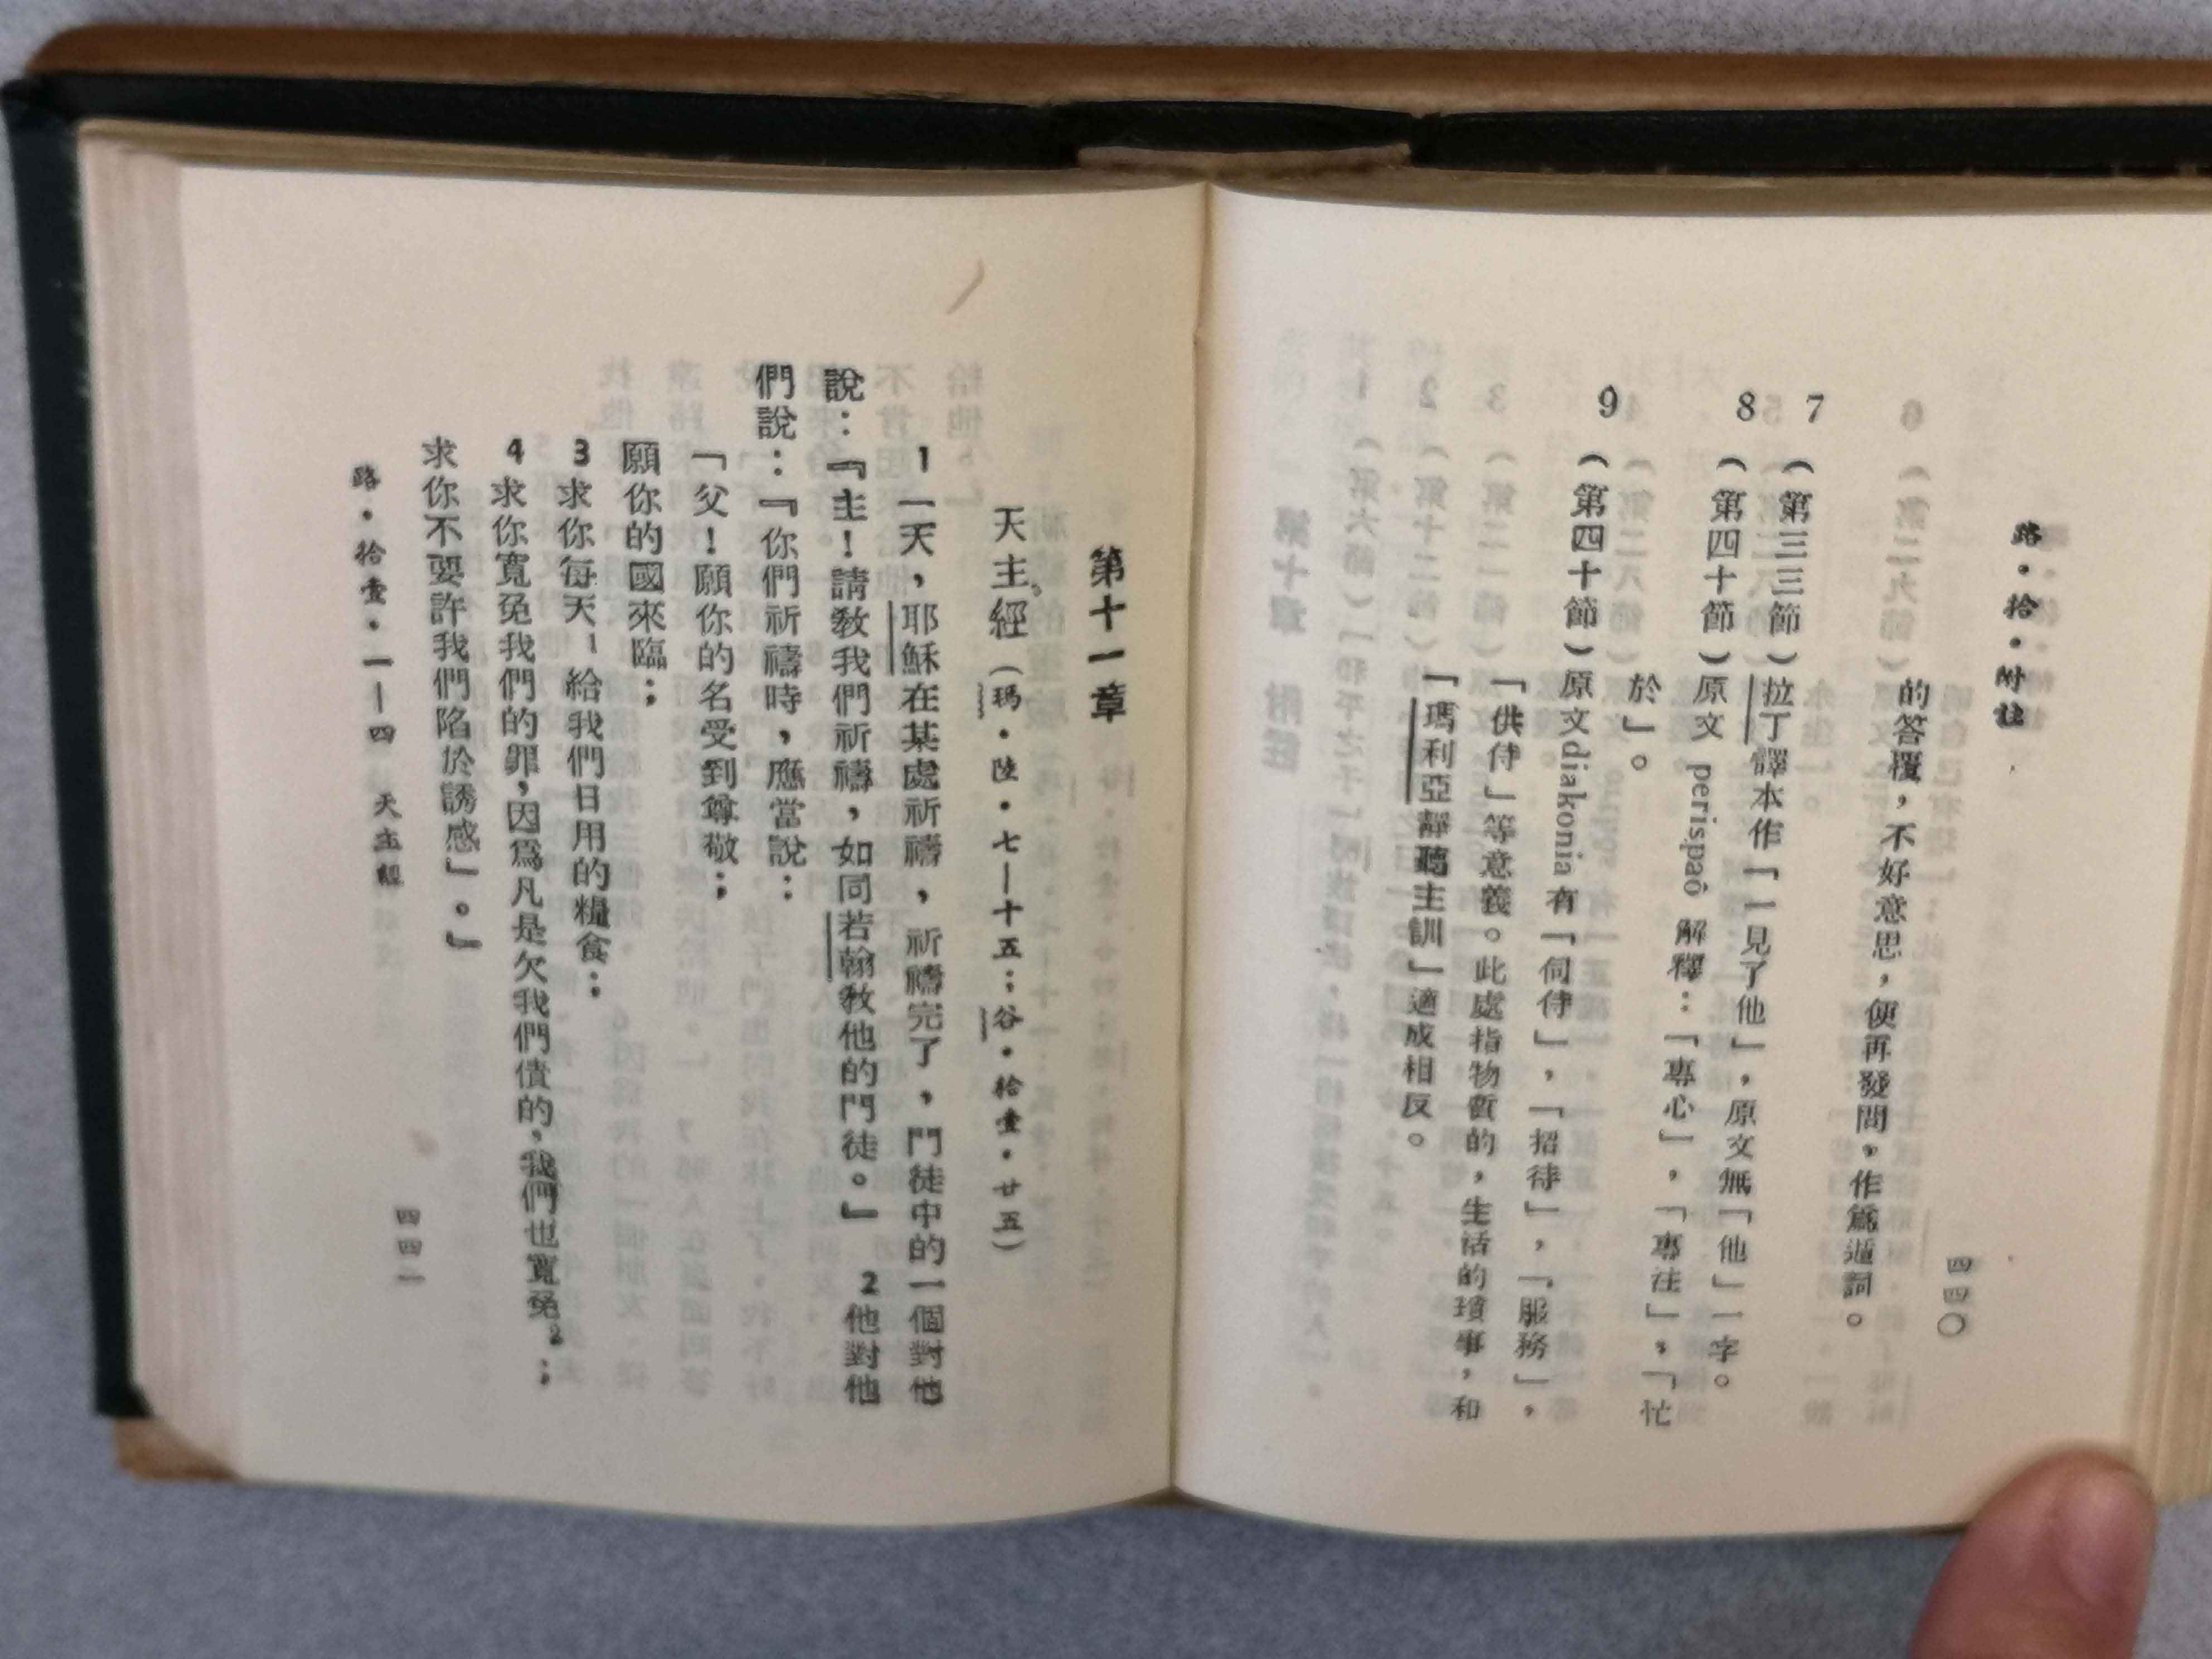 路·拾·附註
四四〇
的答覆，不好意思，便再發問，作爲遁詞。
7（第三三節）拉丁譯本作「一見了他」，原文無「他」一字。
8（第四十節）原文 perispaō 解釋：「專心」，「專注」，「忙
於」。
9（第四十節）原文diakonia有「伺侍」，「招待」，「服務」，
「供侍」等意義。此處指物質的，生活的瑣事，和
「瑪利亞靜聽主訓」適成相反。
第十一章
天主經（瑪·陸·七—十五；谷·拾壹·廿五）
1一天，耶穌在某處祈禱，祈禱完了，門徒中的一個對他
說：『主！請教我們祈禱，如同若翰教他的門徒。』 2他對他
們說：『你們祈禱時，應當說：
「父！願你的名受到尊敬；
願你的國來臨；
3求你每天1給我們日用的糧食；
4求你寬免我們的罪，因爲凡是欠我們債的，我們也寬免2；
求你不要許我們陷於誘感」。』
路·拾壹·一—四 天主經
四四一